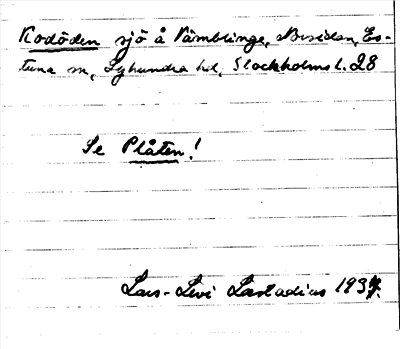 Kodöden sjö å Vämblinge, Norsidan, Es-
tuna sn, Lyhundra hd, Stockholms l. 28
Se Plåten!
Lars-Levi Læstadius 1937.